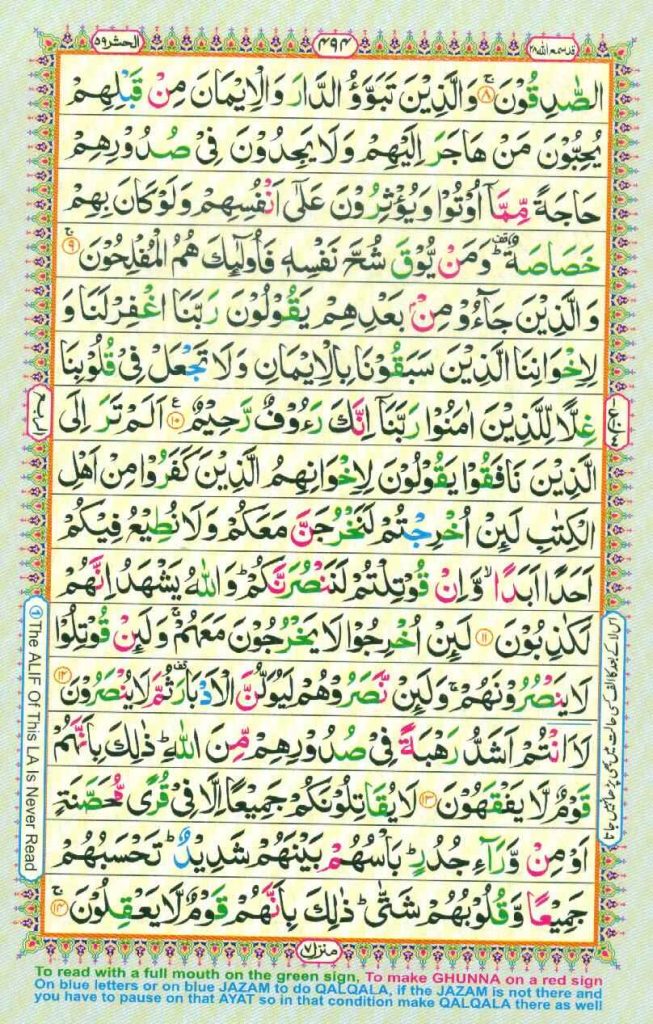 الحشر ٥٩
٤٩٤
قد سمع الله ٢٨
الصّٰدِقُوْنَ ۚ﴿۸﴾ وَالَّذِيْنَ تَبَوَّؤُ الدَّارَ وَالْاِيْمَانَ مِنْ قَبْلِهِمْ
يُحِبُّوْنَ مَنْ هَاجَرَ اِلَيْهِمْ وَلَا يَجِدُوْنَ فِىْ صُدُوْرِهِمْ
حَاجَةً مِّمَّاۤ اُوْتُوْا وَيُؤْثِرُوْنَ عَلٰٓى اَنْفُسِهِمْ وَلَوْ كَانَ بِهِمْ
خَصَاصَةٌ ۗ وَمَنْ يُّوْقَ شُحَّ نَفْسِهٖ فَاُولٰٓئِكَ هُمُ الْمُفْلِحُوْنَ ۚ﴿۹﴾
وَالَّذِيْنَ جَآءُوْ مِنْۢ بَعْدِهِمْ يَقُوْلُوْنَ رَبَّنَا اغْفِرْ لَنَا وَ
لِاِخْوَانِنَا الَّذِيْنَ سَبَقُوْنَا بِالْاِيْمَانِ وَلَا تَجْعَلْ فِىْ قُلُوْبِنَا
غِلًّا لِّلَّذِيْنَ اٰمَنُوْا رَبَّنَاۤ اِنَّكَ رَءُوْفٌ رَّحِيْمٌ ﴿۱۰﴾ع اَلَمْ تَرَ اِلَى
الَّذِيْنَ نَافَقُوْا يَقُوْلُوْنَ لِاِخْوَانِهِمُ الَّذِيْنَ كَفَرُوْا مِنْ اَهْلِ
الْكِتٰبِ لَئِنْ اُخْرِجْتُمْ لَنَخْرُجَنَّ مَعَكُمْ وَلَا نُطِيْعُ فِيْكُمْ
اَحَدًا اَبَدًا ۙ وَّاِنْ قُوْتِلْتُمْ لَنَنْصُرَنَّكُمْ ؕ وَاللّٰهُ يَشْهَدُ اِنَّهُمْ
لَكٰذِبُوْنَ ﴿۱۱﴾ لَئِنْ اُخْرِجُوْا لَا يَخْرُجُوْنَ مَعَهُمْ ۚ وَلَئِنْ قُوْتِلُوْا
لَا يَنْصُرُوْنَهُمْ ۚ وَلَئِنْ نَّصَرُوْهُمْ لَيُوَلُّنَّ الْاَدْبَارَ ۟ ثُمَّ لَا يُنْصَرُوْنَ ﴿۱۲﴾
لَا۠ اَنْتُمْ اَشَدُّ رَهْبَةً فِىْ صُدُوْرِهِمْ مِّنَ اللّٰهِ ؕ ذٰلِكَ بِاَنَّهُمْ
قَوْمٌ لَّا يَفْقَهُوْنَ ﴿۱۳﴾ لَا يُقَاتِلُوْنَكُمْ جَمِيْعًا اِلَّا فِىْ قُرًى مُّحَصَّنَةٍ
اَوْ مِنْ وَّرَآءِ جُدُرٍ ؕ بَاْسُهُمْ بَيْنَهُمْ شَدِيْدٌ ؕ تَحْسَبُهُمْ
جَمِيْعًا وَّقُلُوْبُهُمْ شَتّٰى ؕ ذٰلِكَ بِاَنَّهُمْ قَوْمٌ لَّا يَعْقِلُوْنَ ۚ﴿۱۴﴾
الربع
① The ALIF Of This LA Is Never Read
منزل ٧
To read with a full mouth on the green sign, To make GHUNNA on a red sign
On blue letters or on blue JAZAM to do QALQALA, if the JAZAM is not there and
you have to pause on that AYAT so in that condition make QALQALA there as well